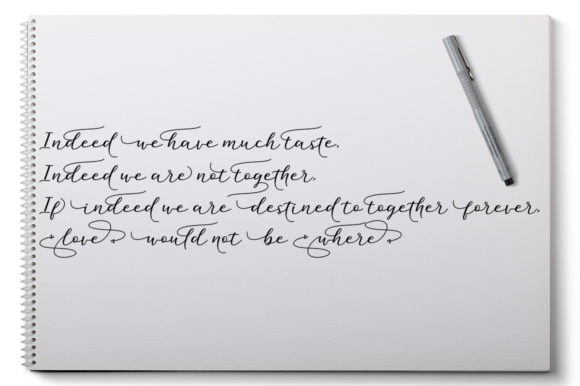 Indeed we have much taste,
Indeed we are not together,
If indeed we are destined to together forever,
love would not be where